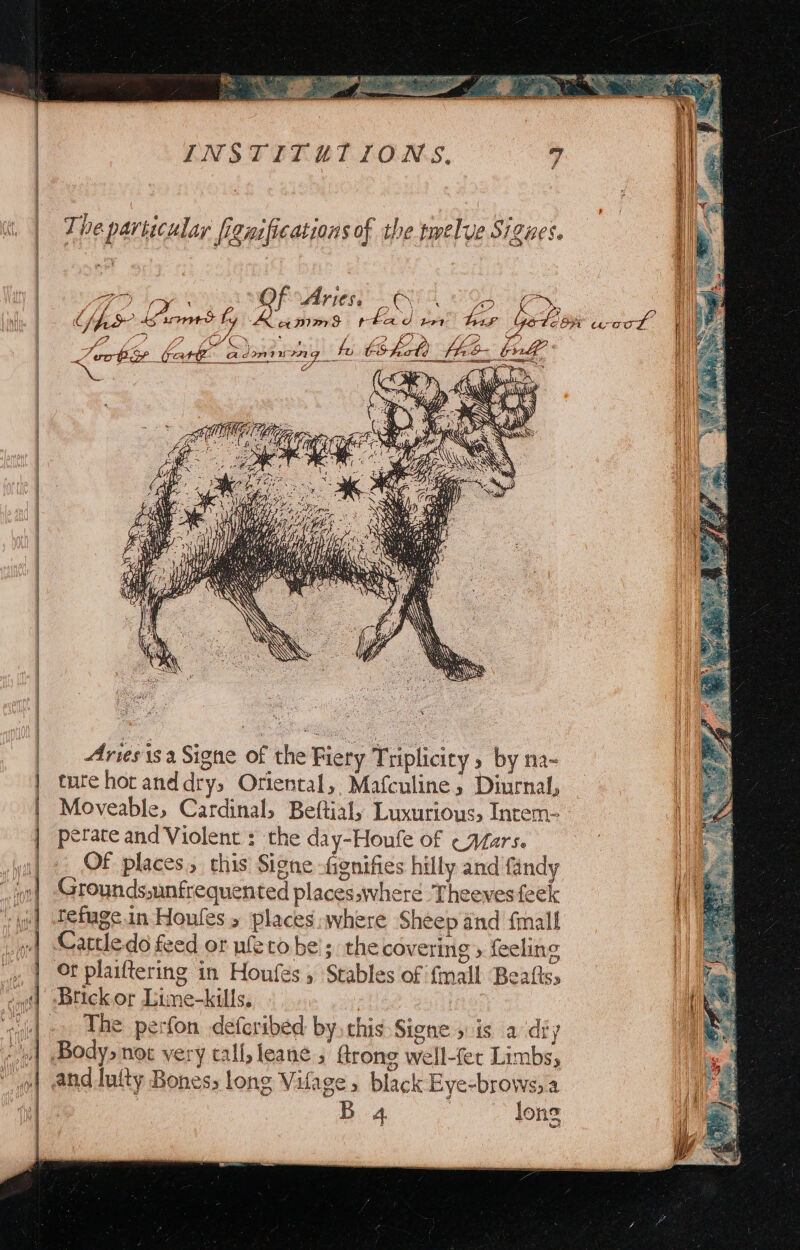 INSTITUTIONS. 7
The particular ſignifications of the twelve Signes.
Of Aries.
The Comely Ramms clad in his Golden wool
Lookse back admiring to behold the bull
Aries is a Signe of the Fiery Triplicity, by na-
ture hot and dry, Oriental, Maſculine, Diurnal,
Moveable, Cardinal, Beſtial, Luxurious, Intem-
perate and Violent: the day-Houſe of Mars.
Of places, this Signe ſignifies hilly and ſandy
Grounds, unfrequented places, where Theeves ſeek
refuge in Houſes, places where Sheep and ſmall
Cattle do feed or uſe to be; the covering, ſeeling
or plaiſtering in Houſes, Stables of ſmall Beaſts,
Brick or Lime-kills.
The perſon deſcribed by this Signe, is a dry
Body, not very tall, leane, ſtrong well-ſet Limbs,
and luſty Bones, long Viſage, black Eye-brows, a
B 4 long